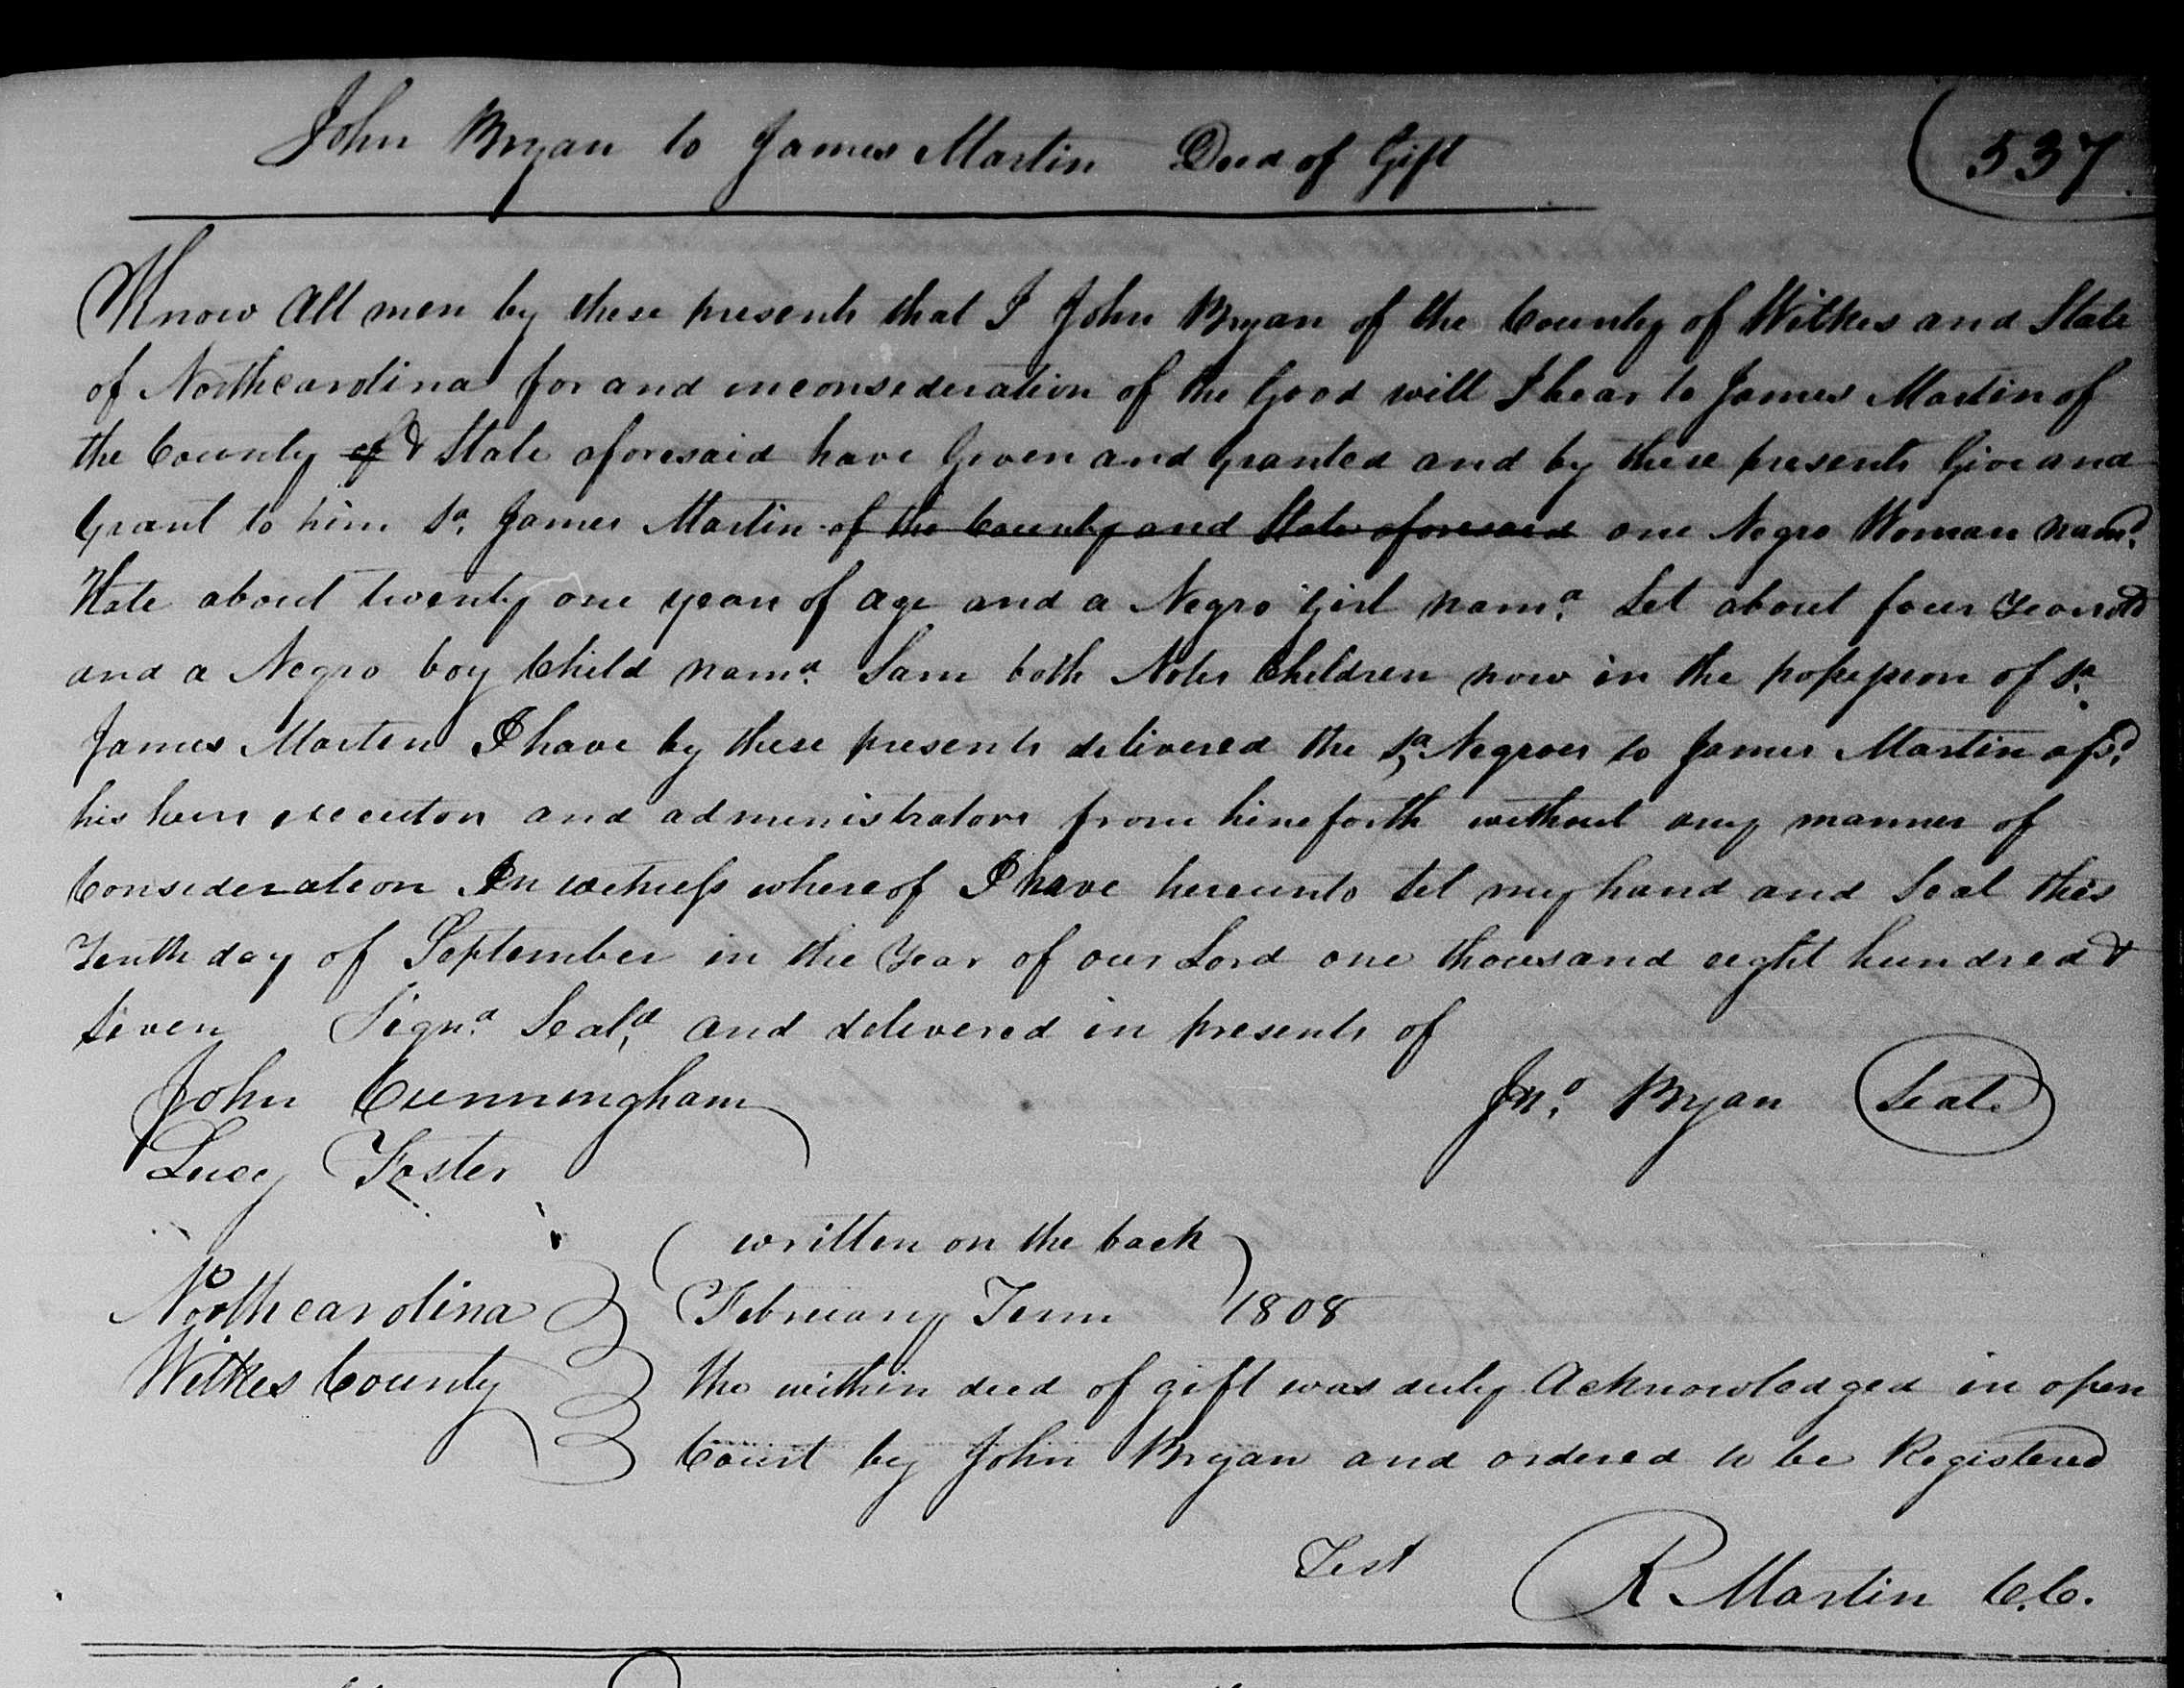 John Bryan to James Martin Deed of Gift
537
Know All men by these presents that I John Bryan of the County of Wilkes and State
of Northcarolina for and inconsideration of the Good will I bear to James Martin of
the County of & State aforesaid have Given and granted and by these presents Give and
Grant to him sd. James Martin of the County and State aforesaid one Negro Woman namd.
Kate about twenty one years of age and a Negro Girl namd. Let about four Years old
and a Negro boy Child namd. Sam both Children now in the possession of sd.
James Martin I have by these presents delivered the sd. Negroes to James Martin afsd.
his heirs executors and administrators from hineforth without any manner of
Consideration In witness whereof I have hereunto set my hand and Seal this
Tenth day of September in the Year of our Lord one thousand eight hundred &
Seven Signd. Seald. and delivered in presents of
John Cunningham
Jno. Bryan Seal
Lucy Foster
written on the back
Northcarolina February Term 1808
Wilkes County the within deed of gift was duly Acknowledged in open
Court by John Bryan and ordered to be Registered
Test R Martin C.C.